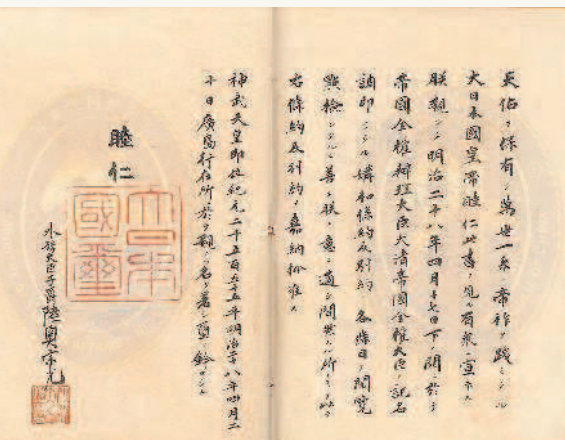 天佑ヲ保有シ萬世一系ノ帝祚ヲ踐ミタル
大日本國皇帝睦仁此書ヲ見ル有衆ニ宣示ス
朕親シク明治二十八年四月十七日下ノ關ニ於テ
帝國全權辨理大臣大清帝國全權大臣ト記名
調印シタル媾和條約及別約ノ各條目ヲ閱覽
點檢シタルニ善ク朕カ意ニ適シ間然スル所ナキヲ以テ
右條約及別約ヲ嘉納批准ス
神武天皇即位紀元二千五百五十五年明治二十八年四月二
十日廣島行在所ニ於テ親ラ名ヲ署シ璽ヲ鈐セシム
睦仁
大日本國璽
外務大臣子爵陸奥宗光